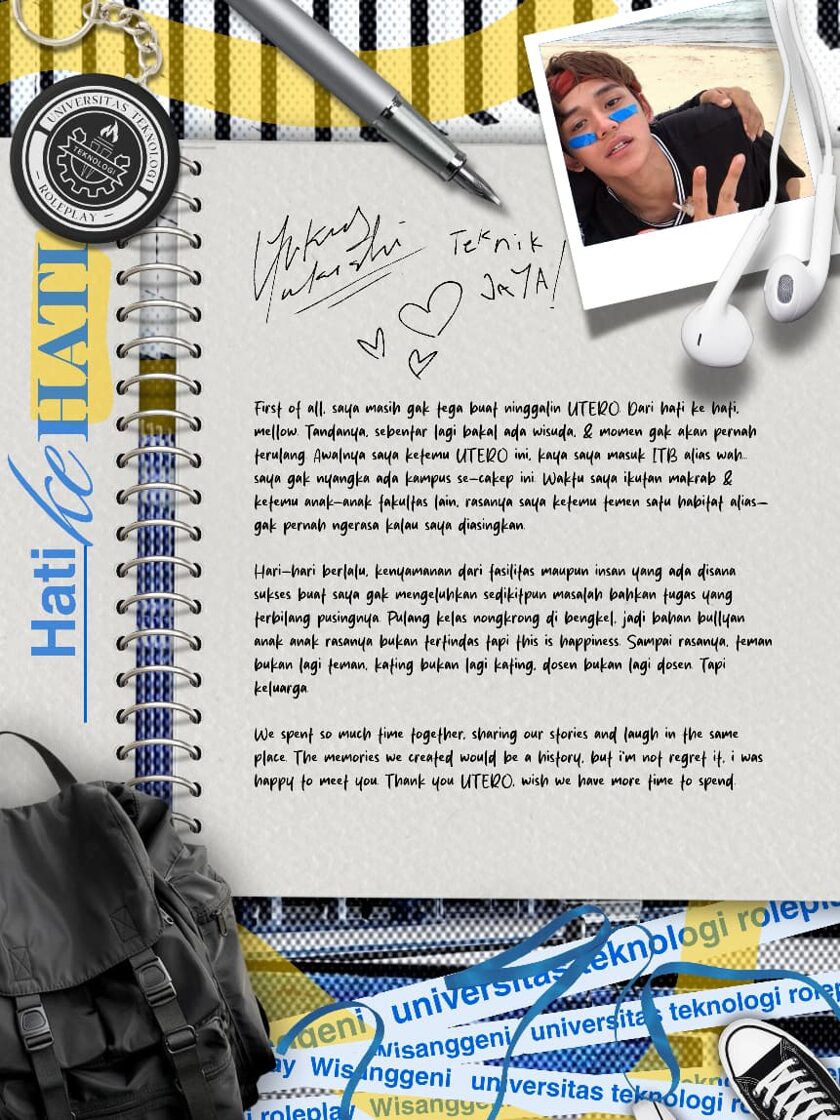 UNIVERSITAS TEKNOLOGI
TEKNOLOGI
- ROLEPLAY -
Hati ke HATI
Teknik
JAYA!
First of all, saya masih gak tega buat ninggalin UTERO. Dari hati ke hati,
mellow. Tandanya, sebentar lagi bakal ada wisuda, & momen gak akan pernah
terulang. Awalnya saya ketemu UTERO ini, kaya saya masuk ITB alias wah..
saya gak nyangka ada kampus se-cakep ini. Waktu saya ikutan makrab &
ketemu anak-anak fakultas lain, rasanya saya ketemu temen satu habitat alias-
gak pernah ngerasa kalau saya diasingkan.
Hari-hari berlalu, kenyamanan dari fasilitas maupun insan yang ada disana
sukses buat saya gak mengeluhkan sedikitpun masalah bahkan tugas yang
terbilang pusingnya. Pulang kelas nongkrong di bengkel, jadi bahan bullyan
anak anak rasanya bukan tertindas tapi this is happiness. Sampai rasanya, teman
bukan lagi teman, kating bukan lagi kating, dosen bukan lagi dosen. Tapi
keluarga.
We spent so much time together, sharing our stories and laugh in the same
place. The memories we created would be a history, but i'm not regret it, i was
happy to meet you. Thank you UTERO, wish we have more time to spend.
universitas teknologi rolepla
Wisanggeni universitas teknologi role
Wisanggeni
roleplay Wisanggeni